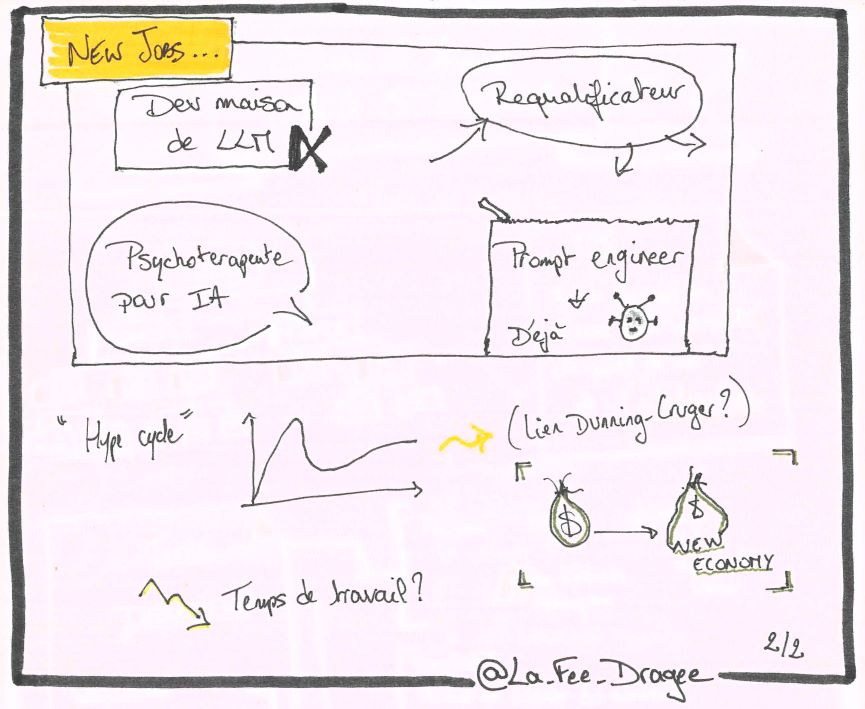 New Jobs...
Dev maison
de LLM
Requalificateur
Psychoterapeute
pour IA
Prompt engineer
Déjà
"Hype cycle"
(Lien Dunning-Cruger?)
$
$
NEW
ECONOMY
Temps de travail?
2/2
@La_Fee_Dragee